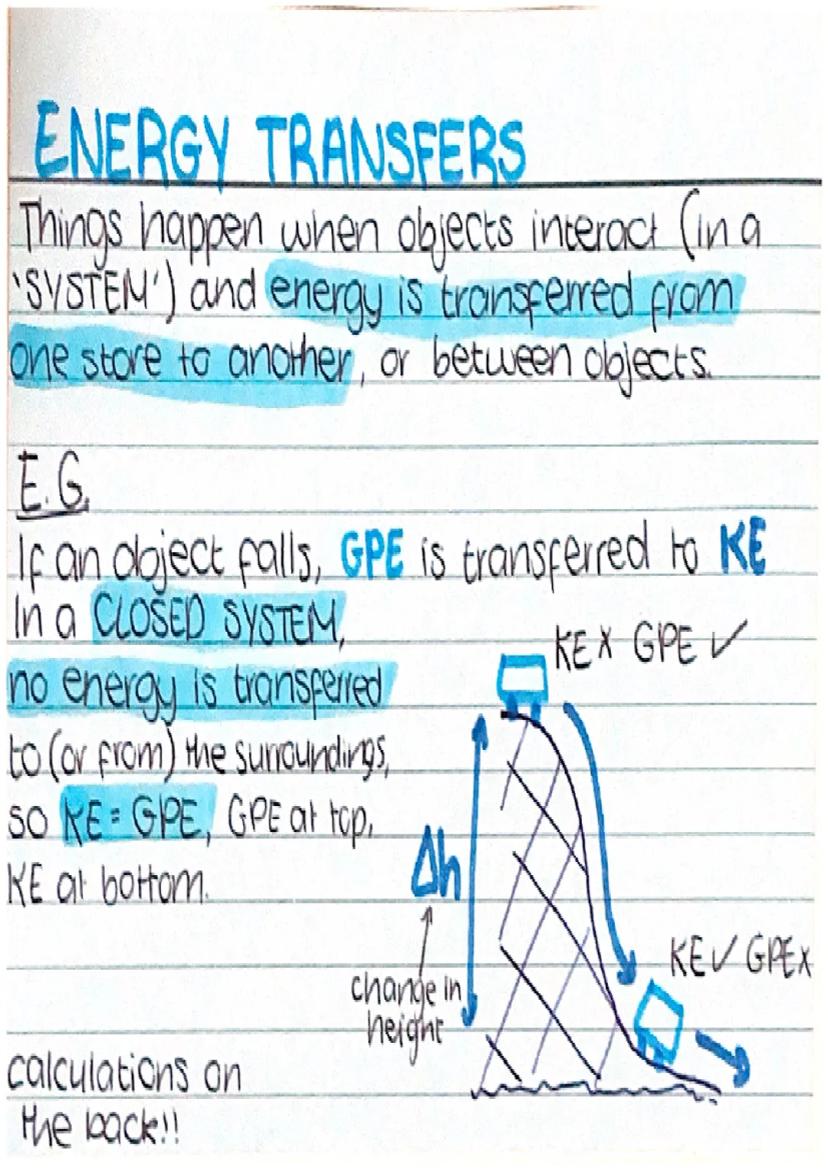 ENERGY TRANSFERS
Things happen when objects interact (in a
'SYSTEM') and energy is transferred from
one store to another, or between objects.
E.G.
If an object falls, GPE is transferred to KE
In a CLOSED SYSTEM,
no energy is transferred
to (or from) the surroundings,
so KE = GPE, GPE at top,
KE at bottom.
KE x GPE ✓
Δh
change in
height
KE ✓ GPE x
calculations on
the back!!